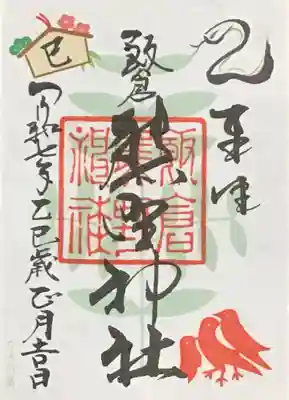 奉拝
飯倉
熊野神社
飯倉
熊野
神社
巳
令和七年乙巳歳正月吉日